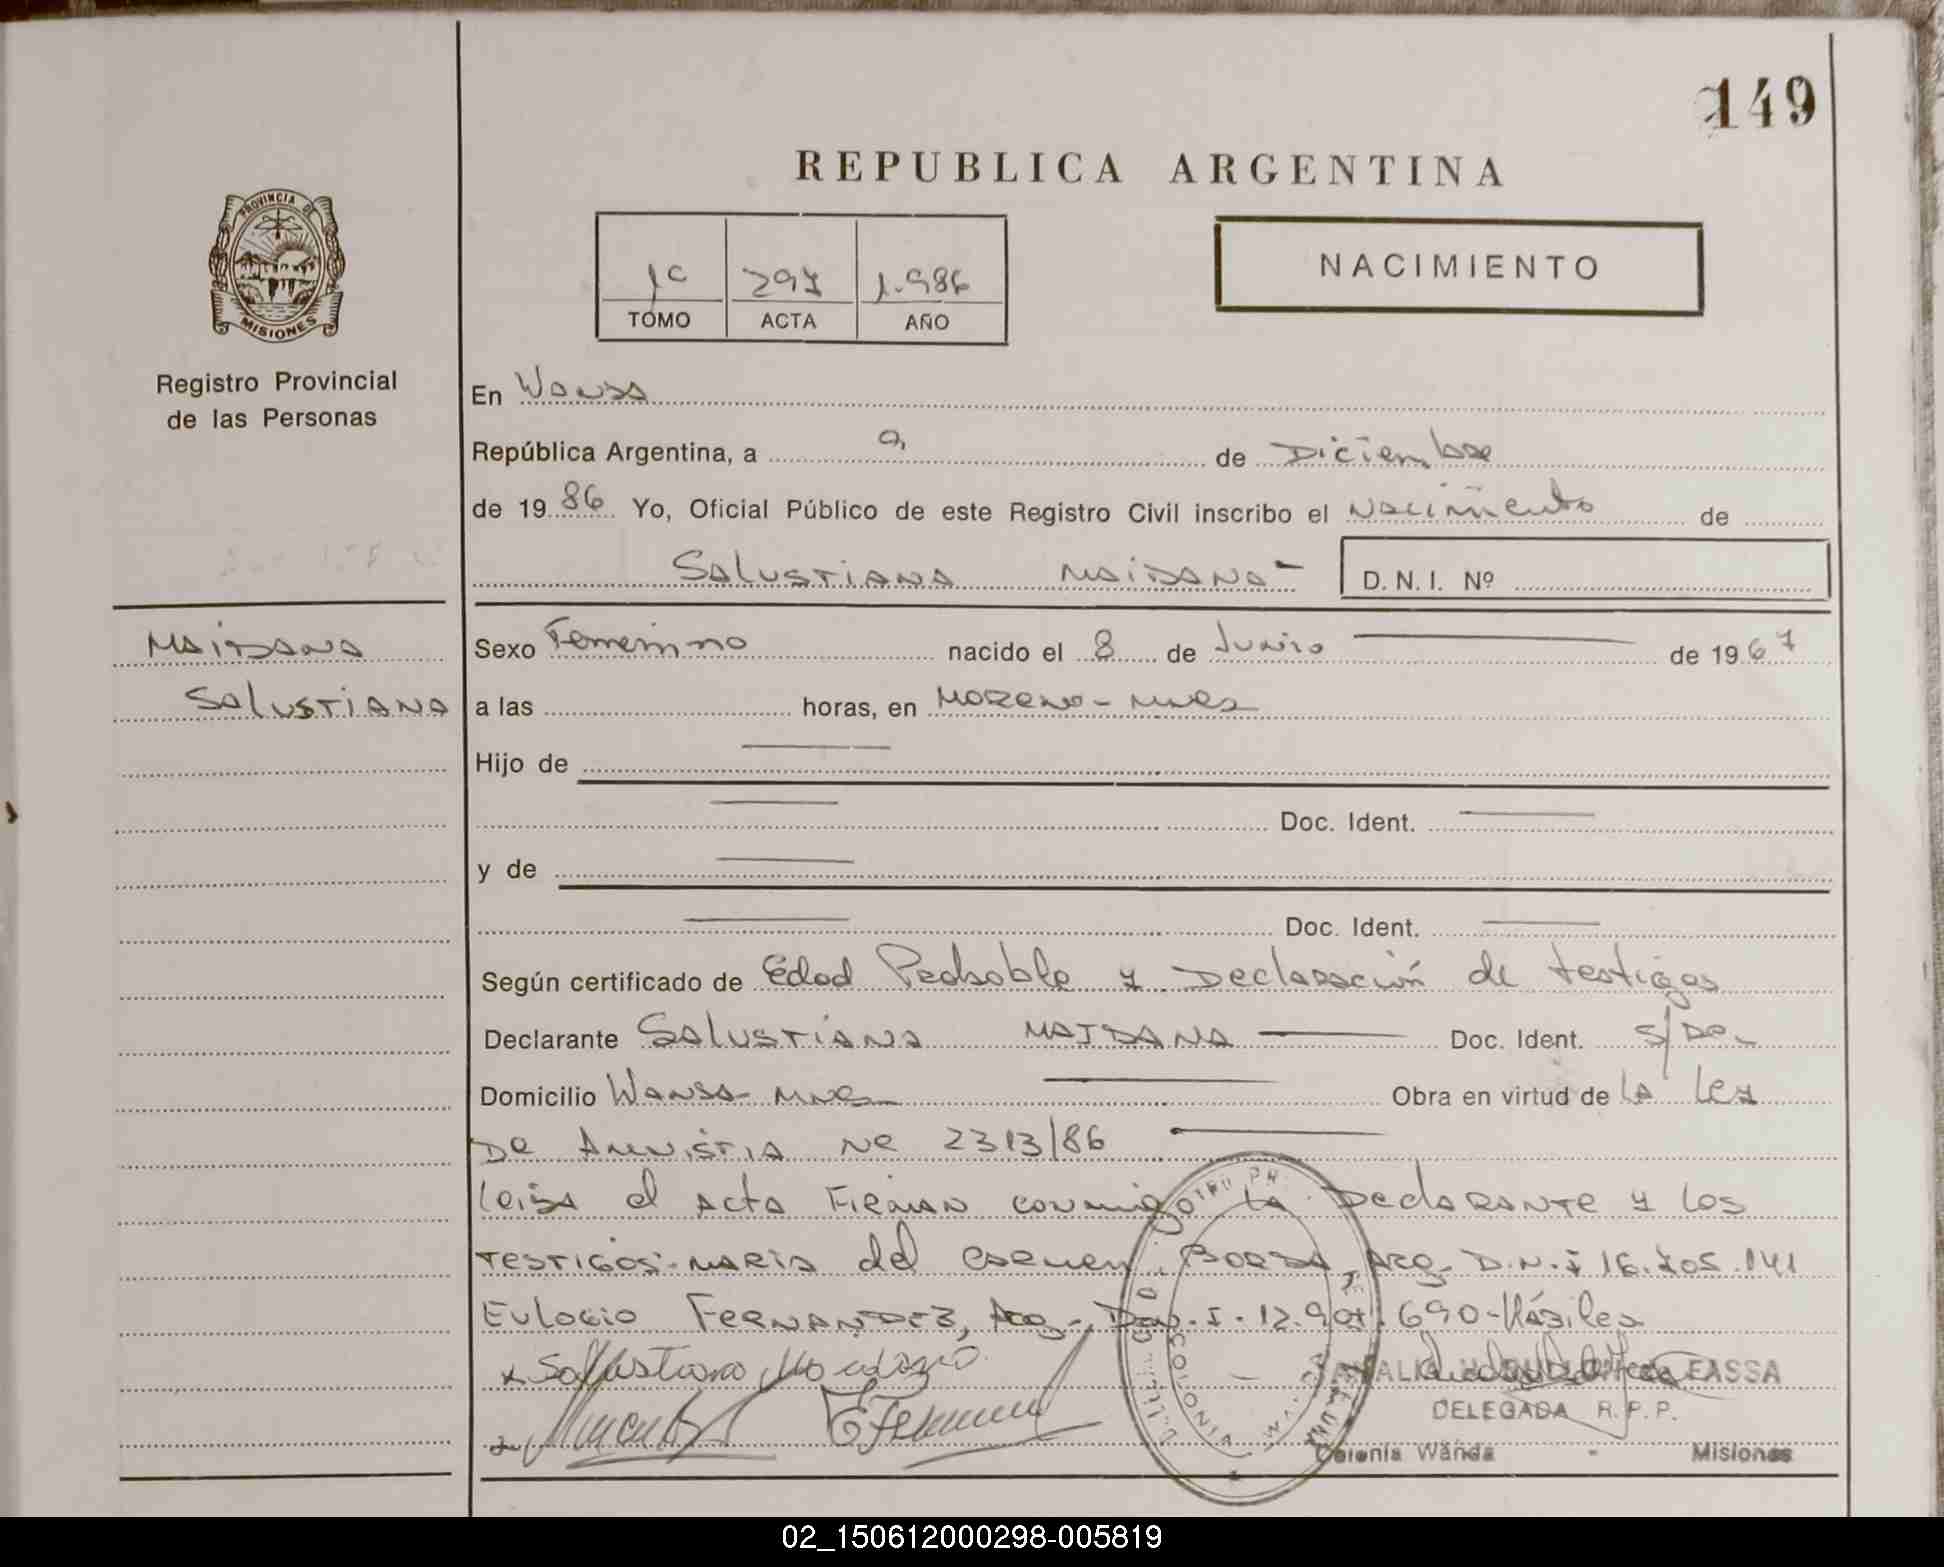 149
REPUBLICA ARGENTINA
PROVINCIA DE
MISIONES
Registro Provincial
de las Personas
1º 297 1.986
TOMO ACTA AÑO
NACIMIENTO
En Wanda
República Argentina, a 9 de Diciembre
de 1986 Yo, Oficial Público de este Registro Civil inscribo el Nacimiento de
Salustiana Maidana - D.N.I. Nº
Maidana
Salustiana
Sexo Femenino nacido el 8 de Junio de 1967
a las horas, en Moreno - Mnes
Hijo de
Doc. Ident.
y de
Doc. Ident.
Según certificado de Edad Probable y Declaración de testigos
Declarante Salustiana MAIDANA Doc. Ident. S/Do.
Domicilio Wanda - Mnes Obra en virtud de La Ley
De Amnistia Nº 2313/86
leida el Acta Firman conmigo la Declarante y los
testigos: Maria del Carmen Borda, Arg. D.N.I 16.205.141
Eulogio Fernandez, Arg., D.N.I. 12.901.690 - Hábiles
x Salustiana Maidana
DELEGADA R.P.P.
Colonia Wanda - Misiones
02_150612000298-005819